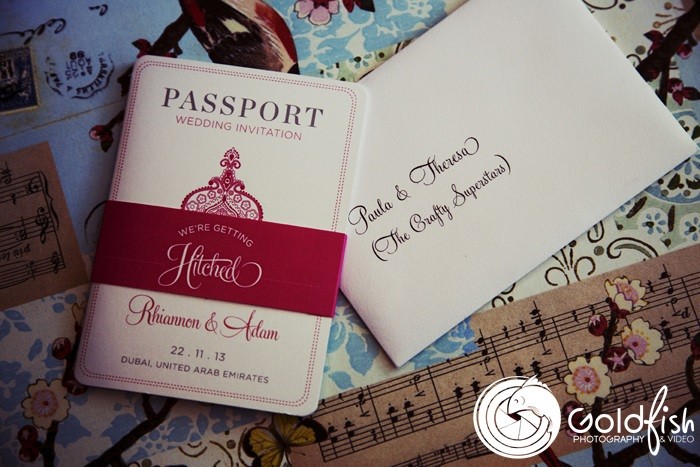 PASSPORT
WEDDING INVITATION
WE'RE GETTING
Hitched
Rhiannon & Adam
22 . 11 . 13
DUBAI, UNITED ARAB EMIRATES
Paula & Theresa
(The Crafty Superstars)
Goldfish
PHOTOGRAPHY & VIDEO